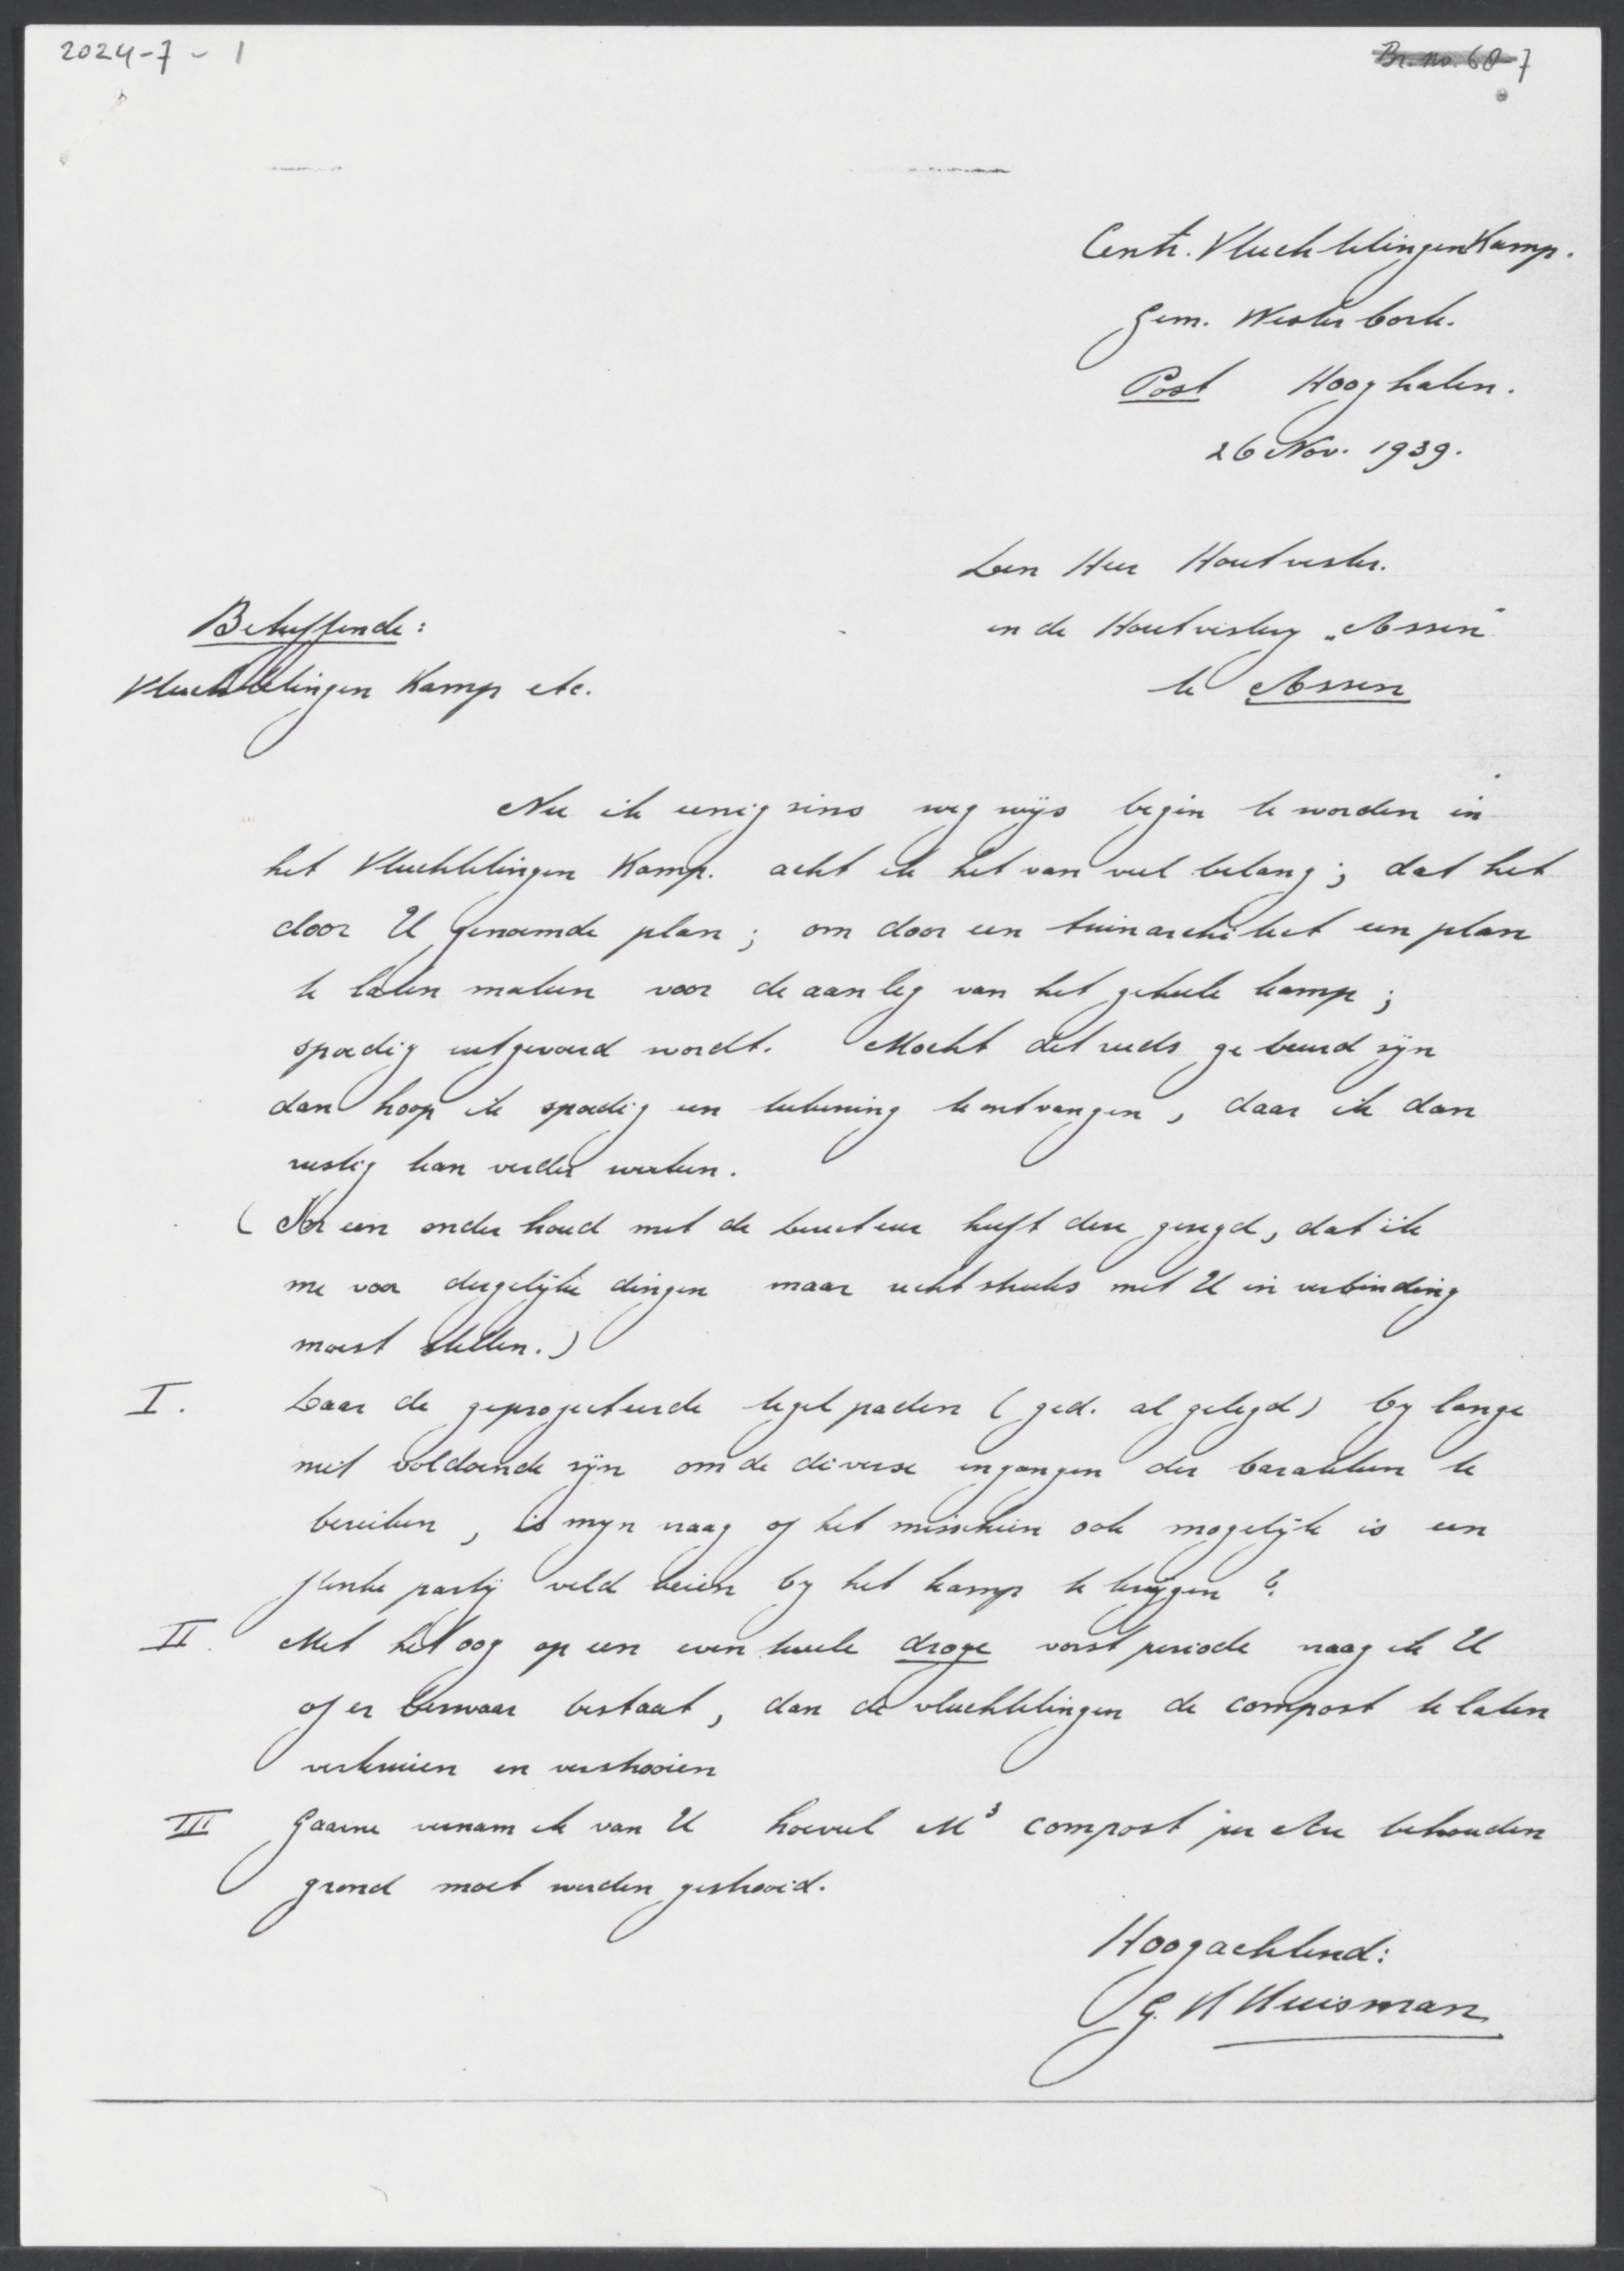 2024-7-1
Br. no. 68-7
Centr. VluchtelingenKamp.
Gem. Westerbork.
Post Hooghalen.
26 Nov. 1939.
Den Heer Houtvester.
in de Houtvestery „Assen"
te Assen
Betreffende:
Vluchtelingen Kamp etc.
Nu ik eenigzins weg wijs begin te worden in
het Vluchtelingen Kamp. acht ik het van veel belang; dat het
door U genoemde plan; om door een tuinarchitect een plan
te laten maken voor de aanleg van het geheele kamp;
spoedig uitgevoerd wordt. Mocht dit reeds gebeurd zijn
dan hoop ik spoedig een teekening te ontvangen, daar ik dan
rustig kan verder werken.
(Na een onderhoud met de Directeur heeft deze gezegd, dat ik
me voor dergelijke dingen maar rechtstreeks met U in verbinding
moest stellen.)
I. Daar de geprojecteerde tegelpaden (ged. al gelegd) by lange
niet voldoende zijn om de diverse ingangen der barakken te
bereiken, is myn vraag of het misschien ook mogelijk is een
flinke partij veld keien by het kamp te krijgen?
II. Met het oog op een eventueele droge vorst periode vraag ik U
of er bezwaar bestaat, dan de vluchtelingen de compost te laten
verkruien en verstrooien
III Gaarne vernam ik van U hoeveel M³ compost per Are behouden
grond moet worden gestrooid.
Hoogachtend:
G. H Huisman